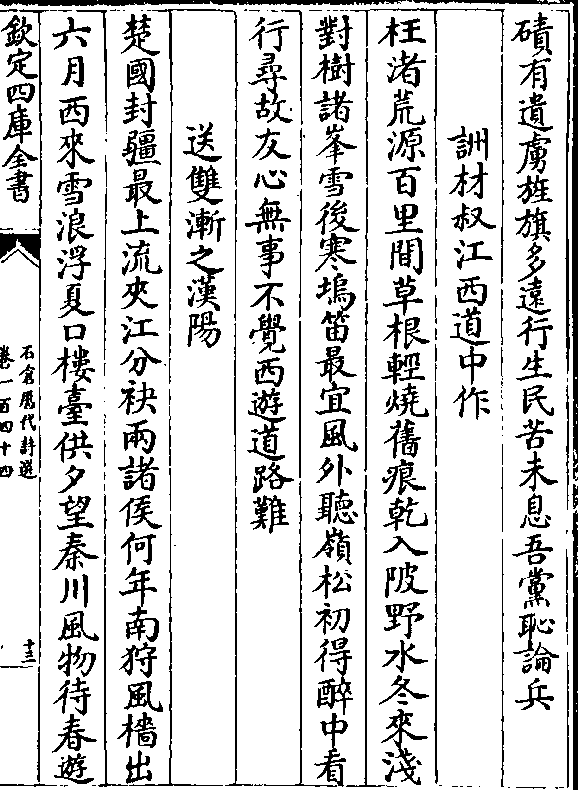 磧有遺虜旌旗多遠行生民苦未息吾黨恥論兵
訓材叔江西道中作
枉渚荒源百里間草根輕燒舊痕乾入陂野水冬來淺
對樹諸峯雪後寒塢笛最宜風外聽嶺松初得醉中看
行尋故友心無事不覺西遊道路難
送雙漸之漢陽
楚國封疆最上流夾江分袂兩諸侯何年南狩風檣出
六月西來雪浪浮夏口樓臺供夕望秦川風物待春遊
欽定四庫全書
石倉歷代詩選
卷一百四十四
十三